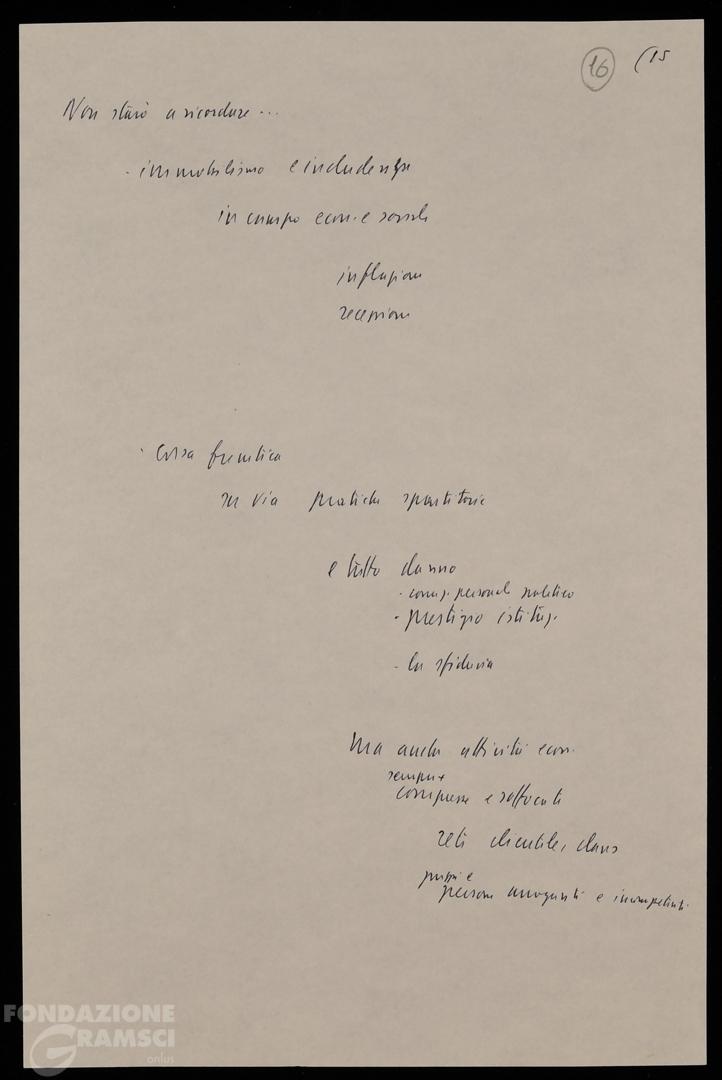 16 (15
Non starò a ricordare...
- immobilismo e inadempienze
in campo econ. e sociale
inflazione
recessione
- Corsa frenetica
su via pratiche spartitorie
e tutto danno
- comp. personale politico
- prestigio istituz.
- la sfiducia
Ma anche attività econ.
sempre +
compresse e soffocate
reti clientele, clans
gruppi e
persone arroganti e incompetenti.
FONDAZIONE
GRAMSCI
onlus